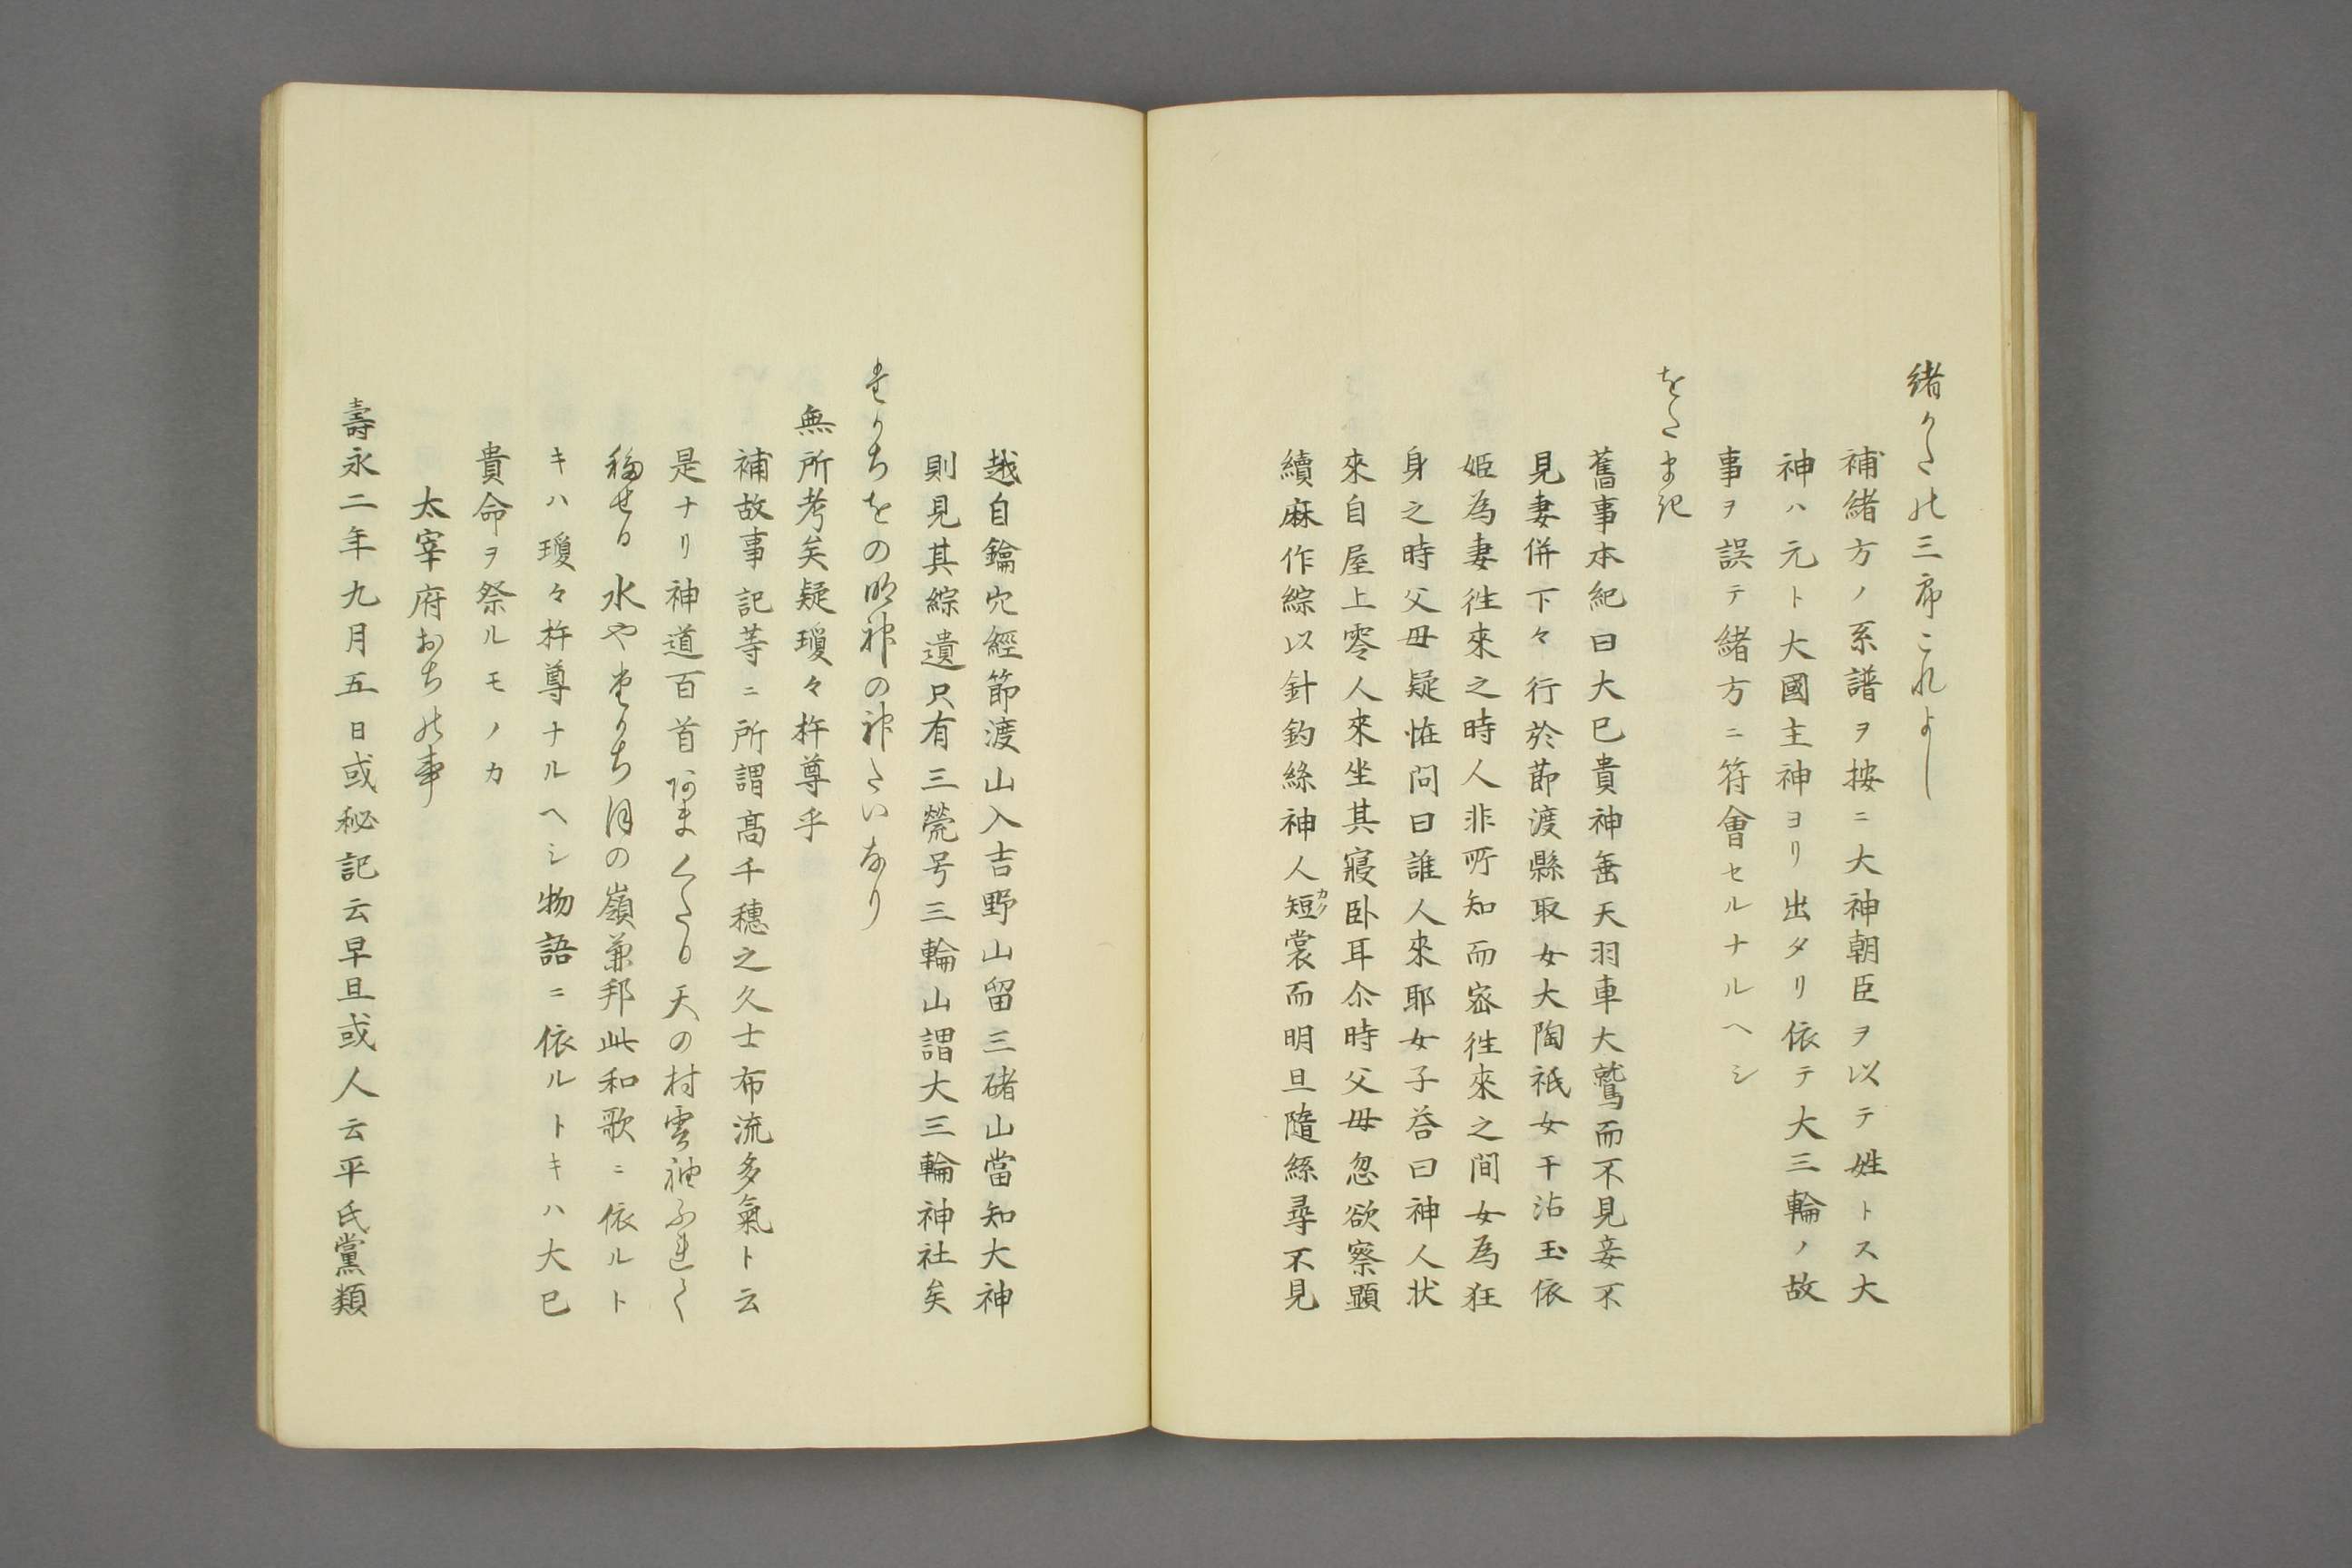 緒かたの三郎これよし
補緒方ノ系譜ヲ按ニ大神朝臣ヲ以テ姓トス大
神ハ元ト大國主神ヨリ出タリ依テ大三輪ノ故
事ヲ誤テ緒方ニ符會セルナルヘシ
をたまき
舊事本紀曰大巳貴神乗天羽車大鷲而不見妾不
見妻併下々行於節渡縣取女大陶祇女干沾玉依
姫為妻徃來之時人非所知而宻徃來之間女為狂
身之時父母疑恠問曰誰人來耶女子荅曰神人状
來自屋上零人來坐其寢卧耳尒時父母忽欲察顕
續麻作綜以針釣絲神人短カノ裳而明旦隨絲尋不見
越自鑰穴經節渡山入吉野山留三諸山當知大神
則見其綜遺只有三㷀号三輪山謂大三輪神社矣
たかちをの明神の神たいなり
無所考矣疑瓊々杵尊乎
補故事記等ニ所謂髙千穗之久士布流多氣ト云
是ナリ神道百首 あまくたる天の村雲神ふれて
移せる水やたかちほの嶺兼邦此和歌ニ依ルト
キハ瓊々杵尊ナルヘシ物語ニ依ルトキハ大巳
貴命ヲ祭ルモノカ
太宰府おちの事
壽永二年九月五日或秘記云早旦或人云平氏黨類